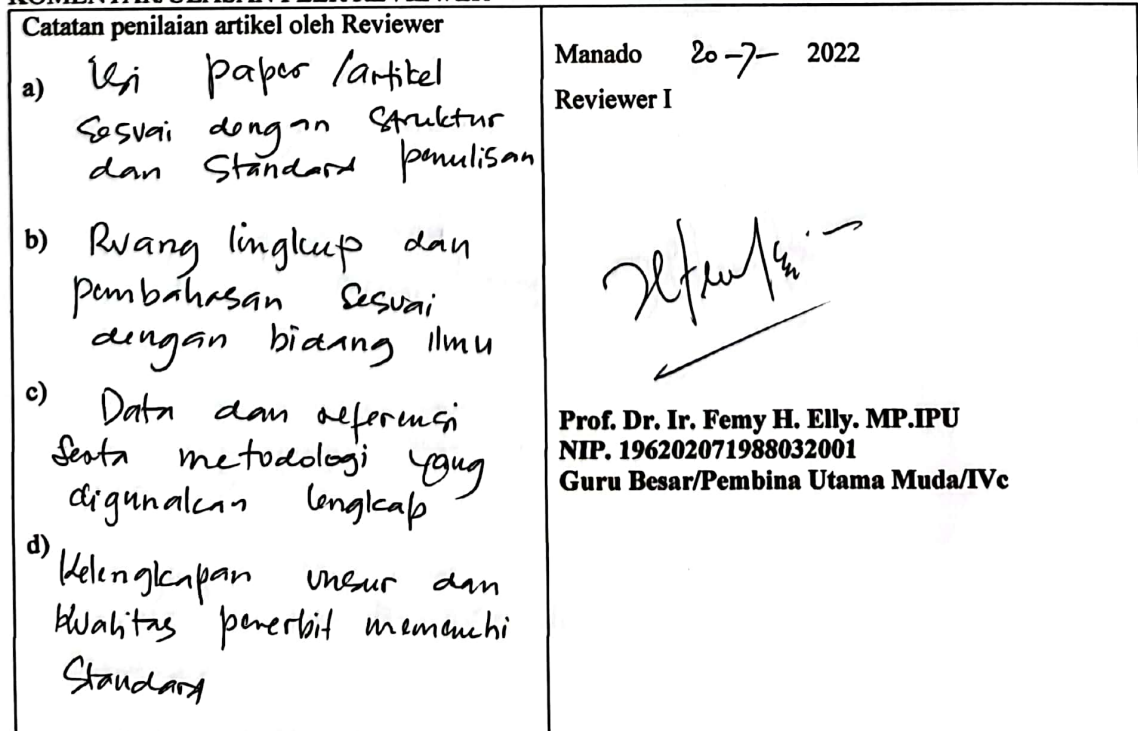 Catatan penilaian artikel oleh Reviewer
a) Isi paper /artikel
sesuai dengan struktur
dan Standard penulisan
b) Ruang lingkup dan
pembahasan sesuai
dengan bidang Ilmu
c) Data dan referensi
serta metodologi yang
digunakan lengkap
d) Kelengkapan unsur dan
kualitas penerbit memenuhi
Standard
Manado 20-7- 2022
Reviewer I
Prof. Dr. Ir. Femy H. Elly. MP.IPU
NIP. 196202071988032001
Guru Besar/Pembina Utama Muda/IVc